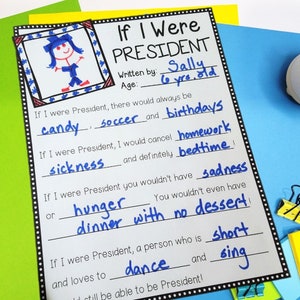 If I Were
PRESIDENT
Written by: Sally
Age: 6 yrs. old
If I were President, there would always be
candy, soccer and birthdays
If I were President, I would cancel homework
sickness and definitely bedtime!
If I were President you wouldn't have sadness
or hunger. You wouldn't even have
dinner with no dessert!
If I were President, a person who is short
and loves to dance and sing
could still be able to be President!